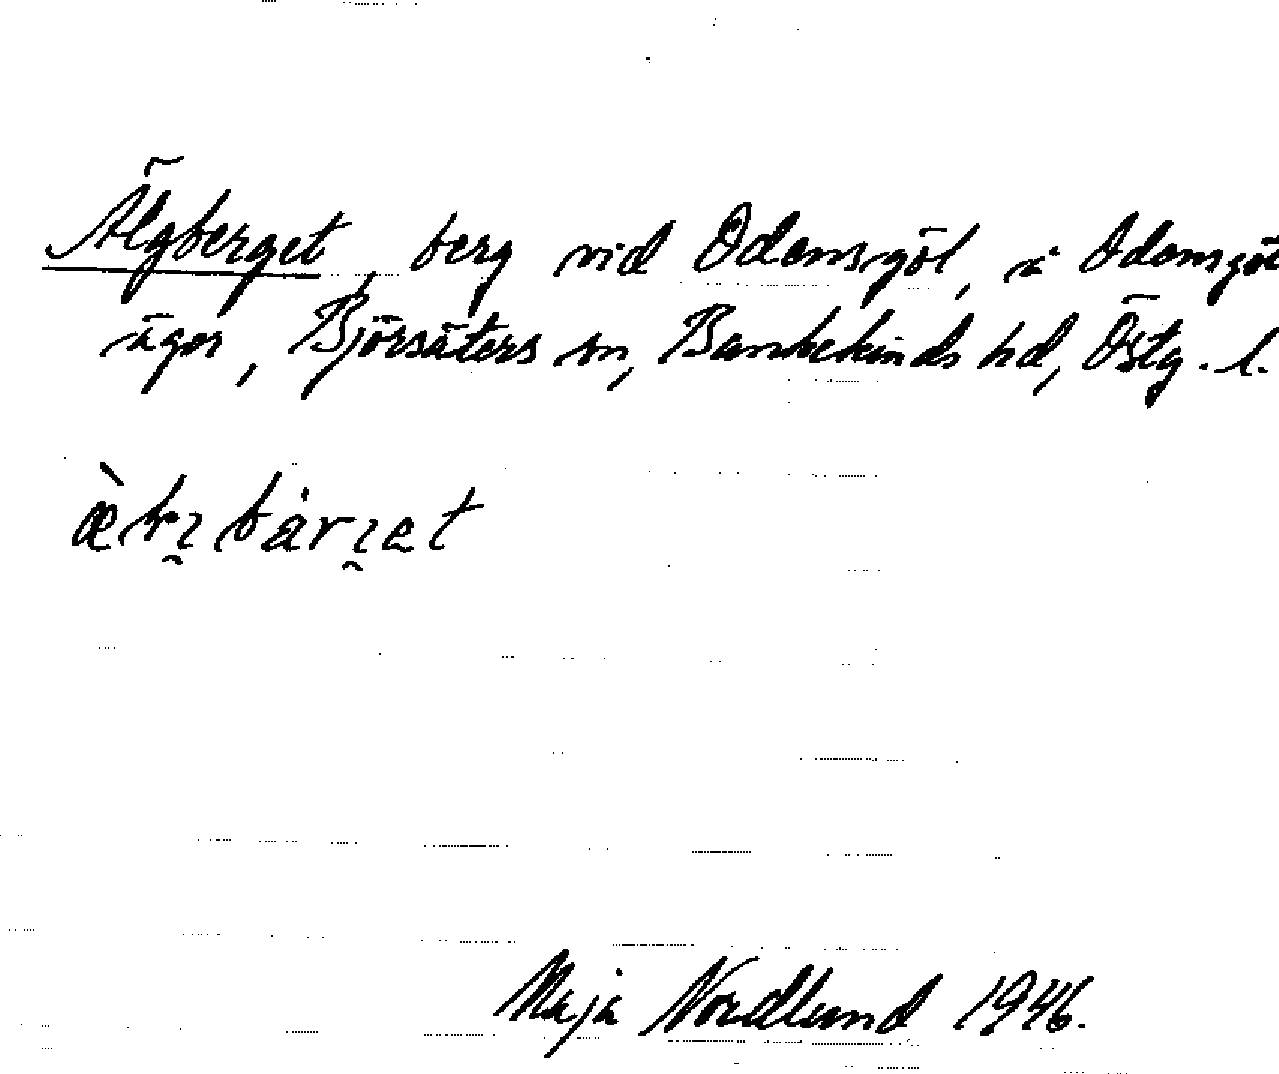 Älgberget, berg vid Odensgöl, å Odensgöl
ägor, Björsäters sn, Bankekinds hd, Östg. l.
Maja Nordlund 1946.